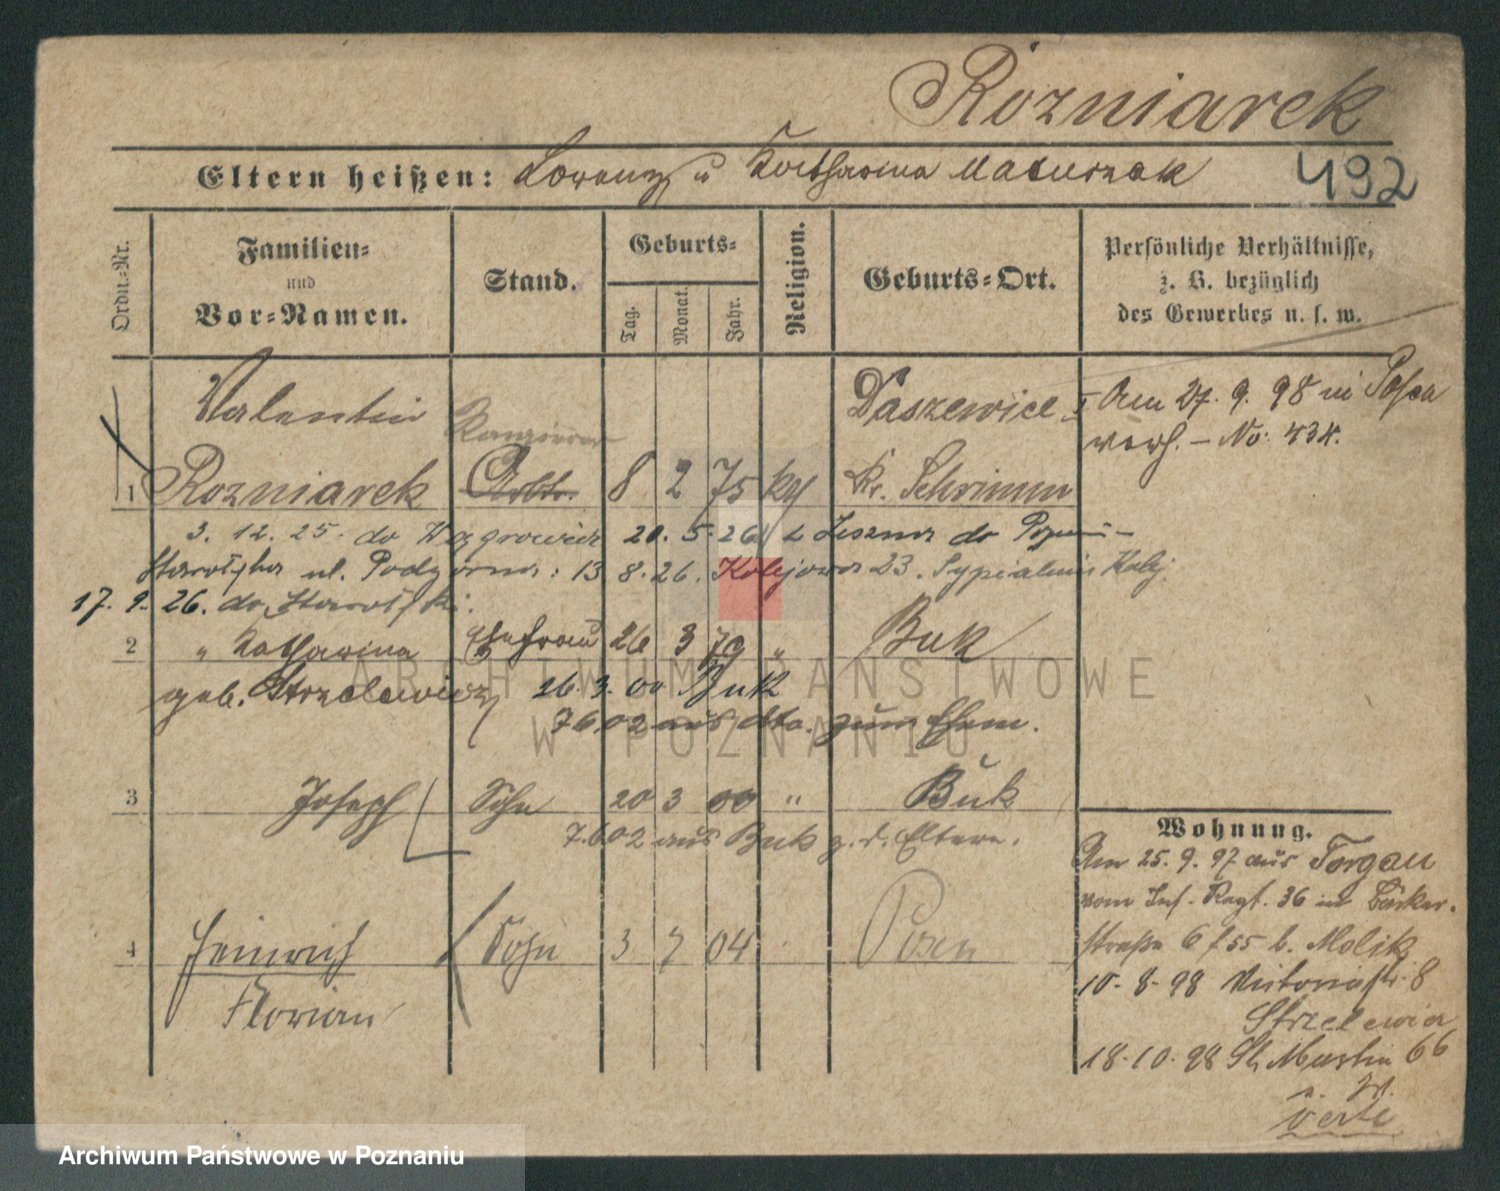 Rozniarek
Eltern heißen: Lorenz u Katharina Matuszak
492
Ordn.-Nr.
Familien-
und
Vor-Namen.
Stand.
Geburts-
Tag.
Monat.
Jahr.
Religion.
Geburts-Ort.
Persönliche Verhältnisse,
z. B. bezüglich
des Gewerbes u. s. w.
Valentin
Daszewice
Am 27. 9. 98 in Posen
verh. – No. 434.
1 Rozniarek Arbtr. 8 2 75 kg Kr. Schrimm
3. 12. 25. do Wągrowiec 20. 5. 26 z Leszna do
Starołęka ul. Podgórna: 13 8. 26. Kolejowa 23.
17. 9. 26. do Starołęki.
2 " Katharina Ehefrau 26 3 79 " Buk
geb. Strzelewicz 26. 3. 00 Buk
7602 aus dto. zum Ehem.
3 Joseph Sohn 20 3 00 " Buk
7.602 aus Buk z. d. Eltern.
Wohnung.
Am 25. 9. 97 aus Torgau
vom Inf. Regt. 36 in Bäcker-
straße 6 b. Molik
10. 8. 98 Victoriastr. 8
4 Heinrich Sohn 3 7 04 Posen
Florian
18. 10. 98 St. Martin 66
verte
ARCHIWUM PAŃSTWOWE
W POZNANIU
Archiwum Państwowe w Poznaniu